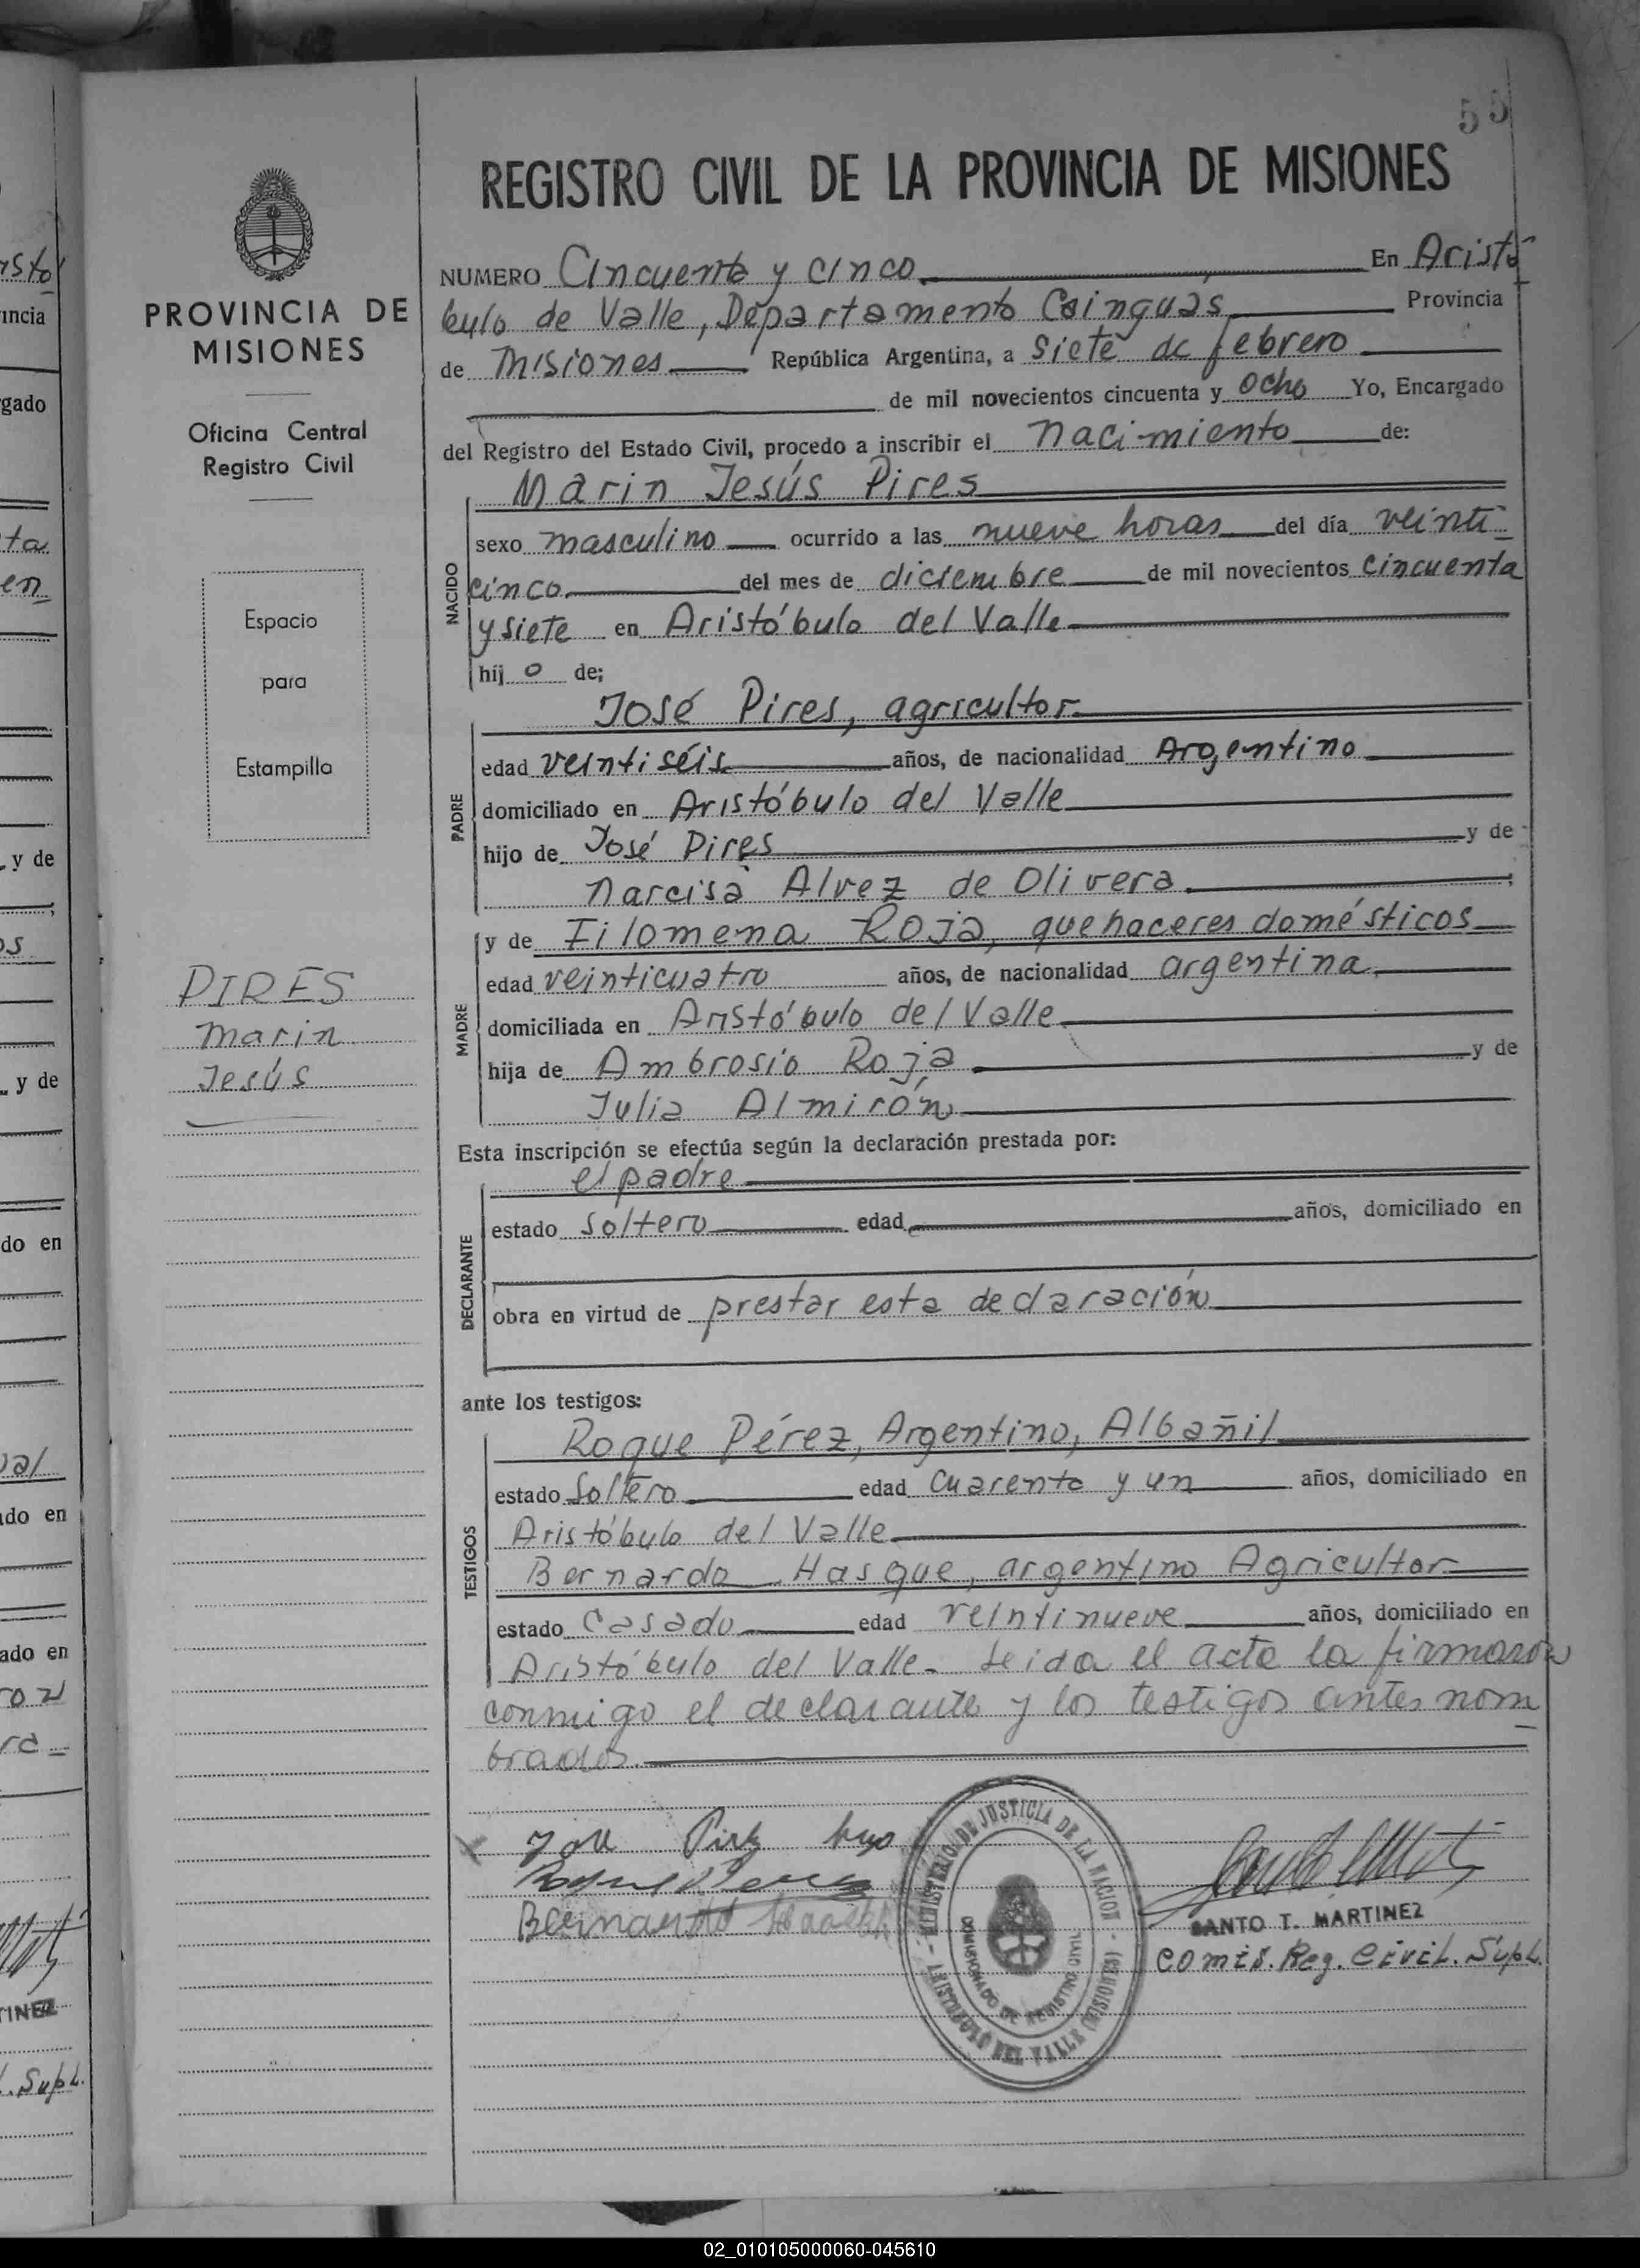 55
REGISTRO CIVIL DE LA PROVINCIA DE MISIONES
NUMERO Cincuenta y cinco En Aristó
bulo de Valle, Departamento Cainguás Provincia
de Misiones República Argentina, a siete de febrero
de mil novecientos cincuenta y ocho Yo, Encargado
del Registro del Estado Civil, procedo a inscribir el nacimiento de:
Marin Jesús Pires
NACIDO
sexo masculino ocurrido a las nueve horas del día veinti
cinco del mes de diciembre de mil novecientos cincuenta
y siete en Aristóbulo del Valle
hij o de;
José Pires, agricultor
PADRE
edad veintiséis años, de nacionalidad Argentino
domiciliado en Aristóbulo del Valle
hijo de José Pires y de
Narcisa Alvez de Olivera
MADRE
y de Filomena Roja, quehaceres domésticos
edad veinticuatro años, de nacionalidad argentina
domiciliada en Aristóbulo del Valle
hija de Ambrosio Roja y de
Julia Almirón
Esta inscripción se efectúa según la declaración prestada por:
el padre
DECLARANTE
estado soltero edad años, domiciliado en
obra en virtud de prestar esta declaración
ante los testigos:
Roque Pérez, Argentino, Albañil
TESTIGOS
estado Soltero edad cuarenta y un años, domiciliado en
Aristóbulo del Valle
Bernardo Hasque, argentino Agricultor
estado casado edad veintinueve años, domiciliado en
Aristóbulo del Valle. Leida el acta la firmaron
conmigo el declarante y los testigos antes nom
brados.
MINISTERIO DE JUSTICIA DE LA NACION - ARISTOBULO DEL VALLE (MISIONES) -
COMISIONADO DE REGISTRO CIVIL
SANTO T. MARTINEZ
Comis. Reg. Civil. Supl.
PROVINCIA DE
MISIONES
Oficina Central
Registro Civil
Espacio
para
Estampilla
PIRES
Marin
Jesús
02_010105000060-045610